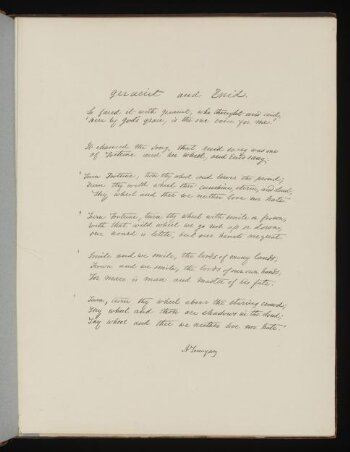 Geraint and Enid.
So fared it with Geraint, who thought and said,
'Here by God's grace, is the one voice for me.'
It chanced the song that Enid sang was one
of Fortune and her wheel, and Enid sang,
'Turn Fortune, turn thy wheel and lower the proud;
Turn thy wild wheel thro' sunshine, storm, and cloud;
Thy wheel and thee we neither love nor hate.
'Turn Fortune, turn thy wheel with smile or frown;
With that wild wheel we go not up or down;
Our hoard is little, but our hearts are great.
'Smile and we smile, the lords of many lands;
Frown and we smile, the lords of our own hands;
For man is man and master of his fate.
'Turn, turn thy wheel above the staring crowd;
Thy wheel and thou are shadows in the cloud;
Thy wheel and thee we neither love nor hate.'
A Tennyson